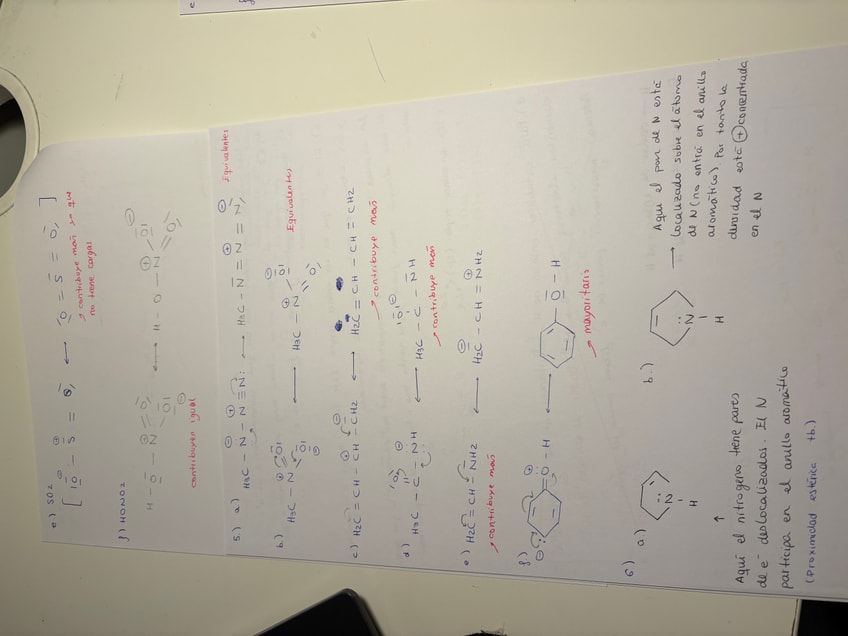 e) SO2
[ |O ⊖ – S ⊕ = O, ⟷ |O = S = O, ]
→ contribuye mas xq
no tiene carga
f) HONO2
H – O – N ⊕ O ⊖ ⟷ H – O – N ⊕ O ⊖
contribuyen igual
5.) a) H3C – N ⊖ – N ⊕ ≡ N: ⟷ H3C – N = N ⊕ = N ⊖ Equivalentes
b.) H3C – N ⊕ O O ⊖ ⟷ H3C – N ⊕ O ⊖ O Equivalentes
c) H2C = CH – CH ⊕ – CH2 ⊖ ⟷ H2C = CH – CH = CH2
→ contribuye mas
d) H3C – C – NH ⟷ H3C – C – NH
→ contribuye mas
e) H2C = CH – NH2 ⟷ H2C ⊖ – CH = NH2 ⊕
→ contribuye mas
f) ⊖ ⊕ O – H ⟷ O – H
→ mayoritaria
6) a) N H b.) N H
Aquí el nitrogeno tiene pares
de e⁻ deslocalizados. El N
participa en el anillo aromático
(Proximidad estérica tb.)
→ Aquí el par de N está
localizado sobre el átomo
de N (no entra en el anillo
aromático). Por tanto la
densidad está ⊕ concentrada
en el N